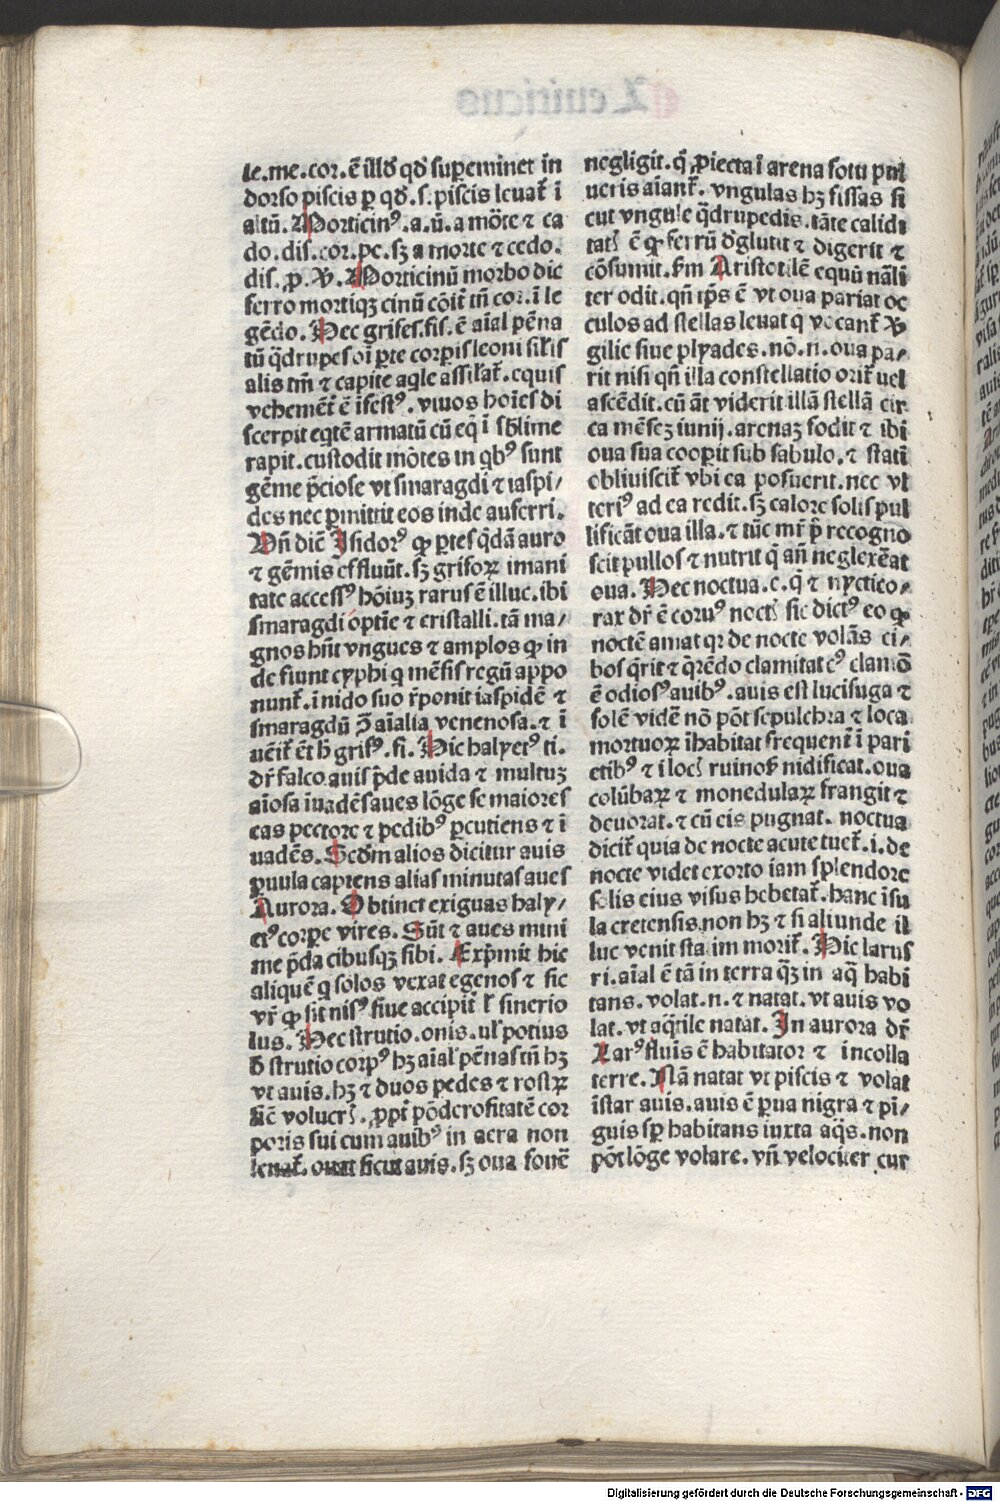 le.me.cor.ē illđ qđ supeminet in
dorso piscis ꝑ qđ.s.piscis leuat̄ ī
altū. Morticinꝰ.a.ū.a mōte ⁊ ca
do.dis.cor.pe.sꝫ a morte ⁊ cedo.
dis.ꝓ.V̓. Morticinū morbo dic
ferro mortiqꝫ cinū cōit̄ tn̄ cor.ī le
gēdo. Hec grises.fis.ē aīal pēna
tū q̄drupes oī ꝑte corpis leoni sil̓is
alis tm̄ ⁊ capite aq̓le assil̓at̄.equis
vehemēt̄ ē īfestꝰ. viuos hoīes di
scerpit eq̓tē armatū cū eq̓ ī sb̓lime
rapit.custodit mōtes in qbꝰ sunt
gēme p̄ciose vt smaragdi ⁊ iaspi/
des nec ꝑmittit eos inde auferri.
Vn̄ diē Isidorꝰ ꝙ ꝑtes q̄dā auro
⁊ gēmis effluūt.sꝫ grifoꝝ imani
tate accessꝰ hōiuꝫ rarus ē illuc.ibi
smaragdi optīe ⁊ cristalli.tā ma/
gnos hn̄t vngues ⁊ amplos ꝙ in
de fiunt cyphi q̓ mēsis regū appo
nunt̄.ī nido suo r̄ponit iaspidē ⁊
smaragdū ꝯ̄ aīalia venenosa.⁊ ī
uēit̄ ēt h̓ grisꝰ.fi. Hic halyetꝰ ti.
dr̄ falco auis p̄de auida ⁊ multuꝫ
aīosa īuadēs aues lōge se maiores
eas pectore ⁊ pedibꝰ ꝑcutiens ⁊ ī
uadēs. Scd̓m alios dicitur auis
ꝑuula capiens alias minutas aues
Aurora. Obtinet exiguas haly/
etꝰ corpe vires. Sūt ⁊ aues mini
me p̄da cibusqꝫ sibi. Exp̄mit hic
aliquē q̓ solos vexat egenos ⁊ sic
vr̄ ꝙ sit nisꝰ siue accipit̄ l̓ sinerio
lus. Hec strutio.onis.ul̓ potius
h̓ strutiocorpꝰ hꝫ aīal pēnas tn̄ hꝫ
vt auis.hꝫ ⁊ duos pedes ⁊ rostꝝ
sic̄ volucrꝭ. ꝓpt̄ pōderositatē cor
poris sui cum auibꝰ in aera non
leuat̄. ouat sicut auis.sꝫ oua fouē
negligit.q̓ ꝓiecta ī arena fotu pul
ueris aīant̄. vngulas hꝫ fissas si
cut vngule q̄drupedis.tāte calidi
tatꝭ ē ꝙ ferrū d̓glutit ⁊ digerit ⁊
cōsumit.ẜm Aristotilē equū nāli
ter odit.qn̄ tp̄s ē vt oua pariat oc
culos ad stellas leuat q̓ vocant̄ V̓
gilie siue plyades.nō.n.oua pa/
rit nisi qn̄ illa constellatio orit̄ uel
ascēdit.cū āt viderit illā stellā cir
ca mēseꝫ iunij.arenaꝫ fodit ⁊ ibi
oua sua coop̄it sub sabulo.⁊ statī
obliuiscit̄ vbi ea posuerit.nec vl
teriꝰ ad ea redit.sꝫ calore solis pul
lificāt oua illa.⁊ tūc mr̄ p̄ recogno
scit pullos ⁊ nutrit q̓ an̄ neglexēat
oua. Hec noctua.e.q̓ ⁊ nyctico/
rax dr̄ ē coruꝰ noctꝭ sic dictꝰ eo ꝙ
noctē amat qꝛ de nocte volās ci/
bos q̄rit ⁊ q̄rēdo clamitat cꝰ clamō
ē odiosꝰ auibꝰ.auis est lucifuga ⁊
solē vidē nō pōt sepulchra ⁊ loca
mortuoꝝ īhabitat frequent̄ ī pari
etibꝰ ⁊ ī locꝭ ruinosꝭ nidificat.oua
colūbaꝝ ⁊ monedulaꝝ frangit ⁊
deuorat.⁊ cū eis pugnat. noctua
dicit̄ quia de nocte acute tuet̄.i.de
nocte videt exorto iam splendore
solis eius visus hebetat̄.hanc īsu
la cretensis non hꝫ ⁊ si aliunde il
luc venit statim morit̄. Hic larus
ri.aīal ē tā in terra q̄ꝫ in aq̄ habi
tans. volat.n.⁊ natat. vt auis vo
lat. vt aq̄tile natat. In aurora dr̄
Larꝰ fluuīs ē habitator ⁊ incolla
terre. Nā natat vt piscis ⁊ volat
īstar auis.auis ē ꝑua nigra ⁊ pī/
guis sꝑ habitans iuxta aq̄s.non
pōt lōge volare. vn̄ velociter cur